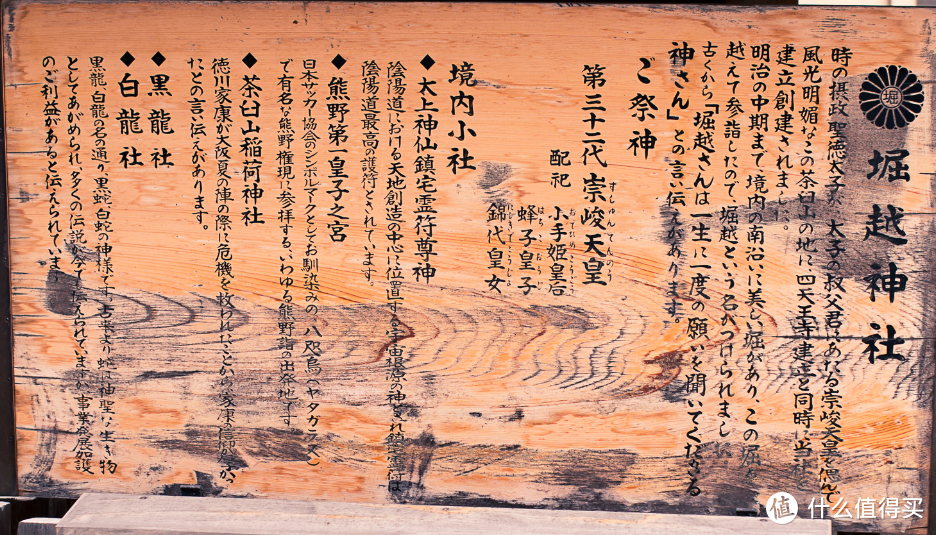 堀
堀越神社
時の摂政 聖徳太子が、太子の叔父君にあたる崇峻天皇を偲んで
風光明媚なこの茶臼山の地に四天王寺建立と同時に当社を
建立創建されました。
明治の中期まで境内の南沿いに美しい堀があり、この堀を
越えて参詣したので、堀越という名がつけられまし
古くから「堀越さんは一生に一度の願いを聞いてくださる
神さん」との言い伝えがあります。
ご祭神
第三十二代 崇峻天皇
すしゅんてんのう
配祀
小手姫皇后
蜂子皇子
はちこおうじ
錦代皇女
境内小社
◆太上神仙鎮宅霊符尊神
陰陽道における天地創造の中心に位置する宇宙根源の神され鎮宅霊符は
陰陽道最高の護符とされています。
◆熊野第一皇子之宮
日本サッカー協会のシンボルマークとしてお馴染みの、八咫烏(ヤタガラス)
で有名な熊野権現に参拝する、いわゆる熊野詣の出発地です
◆茶臼山稲荷神社
徳川家康が大阪夏の陣の際に危機を救われたことから、家康の信が
たとの言い伝えがあります。
◆黒龍社
◆白龍社
黒龍、白龍の名の通り、黒蛇、白蛇の神様です 古来より蛇は神聖な生き物
としてあがめられ、多くの伝説が今でも伝えられています 事業発展、加護
のご利益があると伝えられていま
值
什么值得买